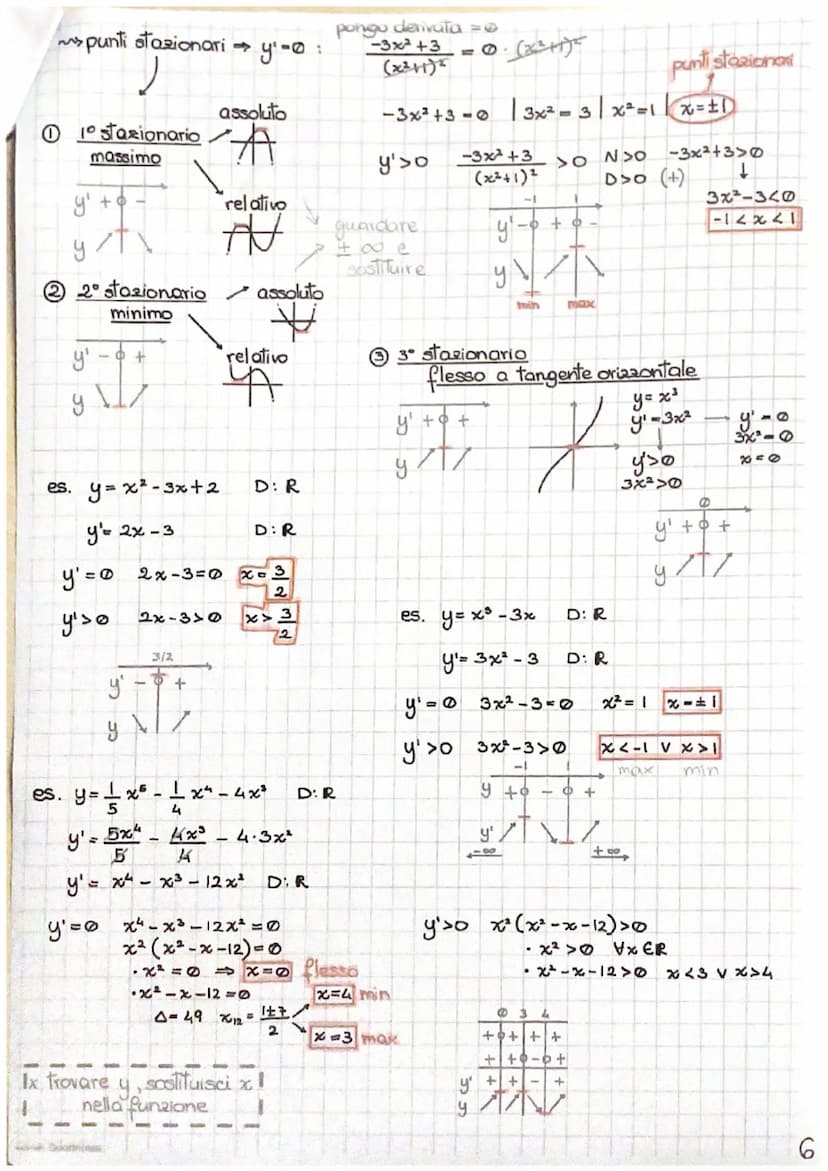 pongo derivata = 0
⇝ punti stazionari ⇒ y'=0 : (-3x²+3)/(x²+1)² = 0 · (x²+1)²
punti stazionari
-3x²+3=0 | 3x²=3 | x²=1 | x=±1
① 1° stazionario
massimo
assoluto
relativo
y' + 0 -
y
y'>0 (-3x²+3)/(x²+1)² >0 N>0 -3x²+3>0
D>0 (+)
3x²-3<0
-1<x<1
guardare
± ∞ e
sostituire
-1 1
y' - 0 + 0 -
y
min max
② 2° stazionario
minimo
assoluto
relativo
y' - 0 +
y
③ 3° stazionario
flesso a tangente orizzontale
y' + 0 +
y
y=x³
y'=3x²
y'>0
3x²>0
y'=0
3x²=0
x=0
0
y' + 0 +
y
es. y=x²-3x+2 D:R
y'=2x-3 D:R
y'=0 2x-3=0 x=3/2
y'>0 2x-3>0 x>3/2
3/2
y' - 0 +
y
es. y=x³-3x D:R
y'=3x²-3 D:R
y'=0 3x²-3=0 x²=1 x=±1
y'>0 3x²-3>0 x<-1 ∨ x>1
max min
-1 1
y + 0 - 0 +
y'
-∞ +∞
es. y=1/5 x⁵ - 1/4 x⁴ - 4x³ D:R
y'=5x⁴/5 - 4x³/4 - 4·3x²
y'= x⁴ - x³ - 12x² D:R
y'=0 x⁴-x³-12x²=0
x²(x²-x-12)=0
·x²=0 ⇒ x=0 flesso
·x²-x-12=0
Δ=49 x₁₂=(1±7)/2
x=4 min
x=3 max
y'>0 x²(x²-x-12)>0
· x²>0 ∀x∈R
· x²-x-12>0 x<3 ∨ x>4
0 3 4
+ 0 + + +
+ + 0 - 0 +
y' + + - +
y
x trovare y, sostituisci x
nella funzione
6